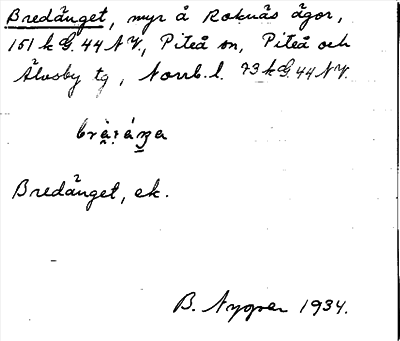 Bredänget, myr å Roknäs ägor,
151 k G. 44 NV., Piteå sn, Piteå och
Älvsby tg, Norrb. l. 73 k G. 44 NV.
Bredänget, ek.
B. Nygren 1934.